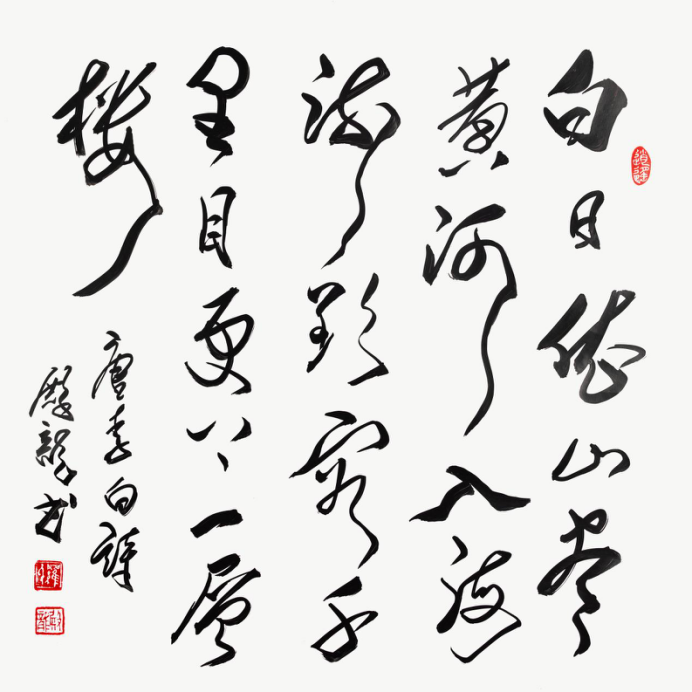 白日依山尽
黄河入海
流欲穷千
里目更上一层
楼
唐李白诗